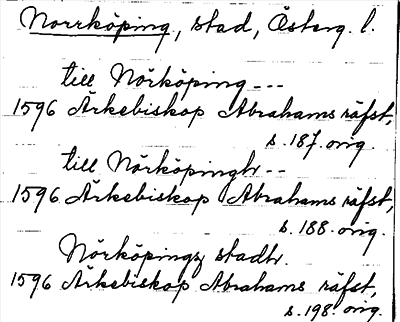 Norrköping, stad, Österg. l.
till Nörköping ---
1596 Ärkebiskop Abrahams räfst,
s. 187. orig.
till Nörköpingh --
1596 Ärkebiskop Abrahams räfst,
s. 188. orig.
Nörköpingz stadh.
1596 Ärkebiskop Abrahams räfst,
s. 198. orig.